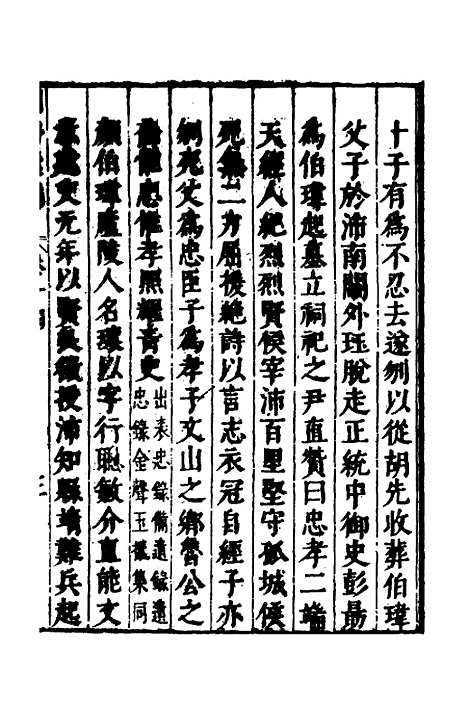 十子有為不忍去遂刎以從胡先收葬伯瑋
父子於沛南關外珏脫走正統中御史彭勗
為伯瑋起墓立祠祀之尹直贊曰忠孝二端
天經人紀烈烈賢侯宰沛百里堅守孤城倏
死無二力屈援絕詩以言志衣冠自經子亦
刎死父為忠臣子為孝子文山之鄉魯公之
忠惟孝照耀青史
出表忠錄備遺錄遺
忠錄金聲玉振集同
顏伯瑋廬陵人名瓌以字行聰敏分直能文
建文元年以賢良徵授沛知縣靖難兵起